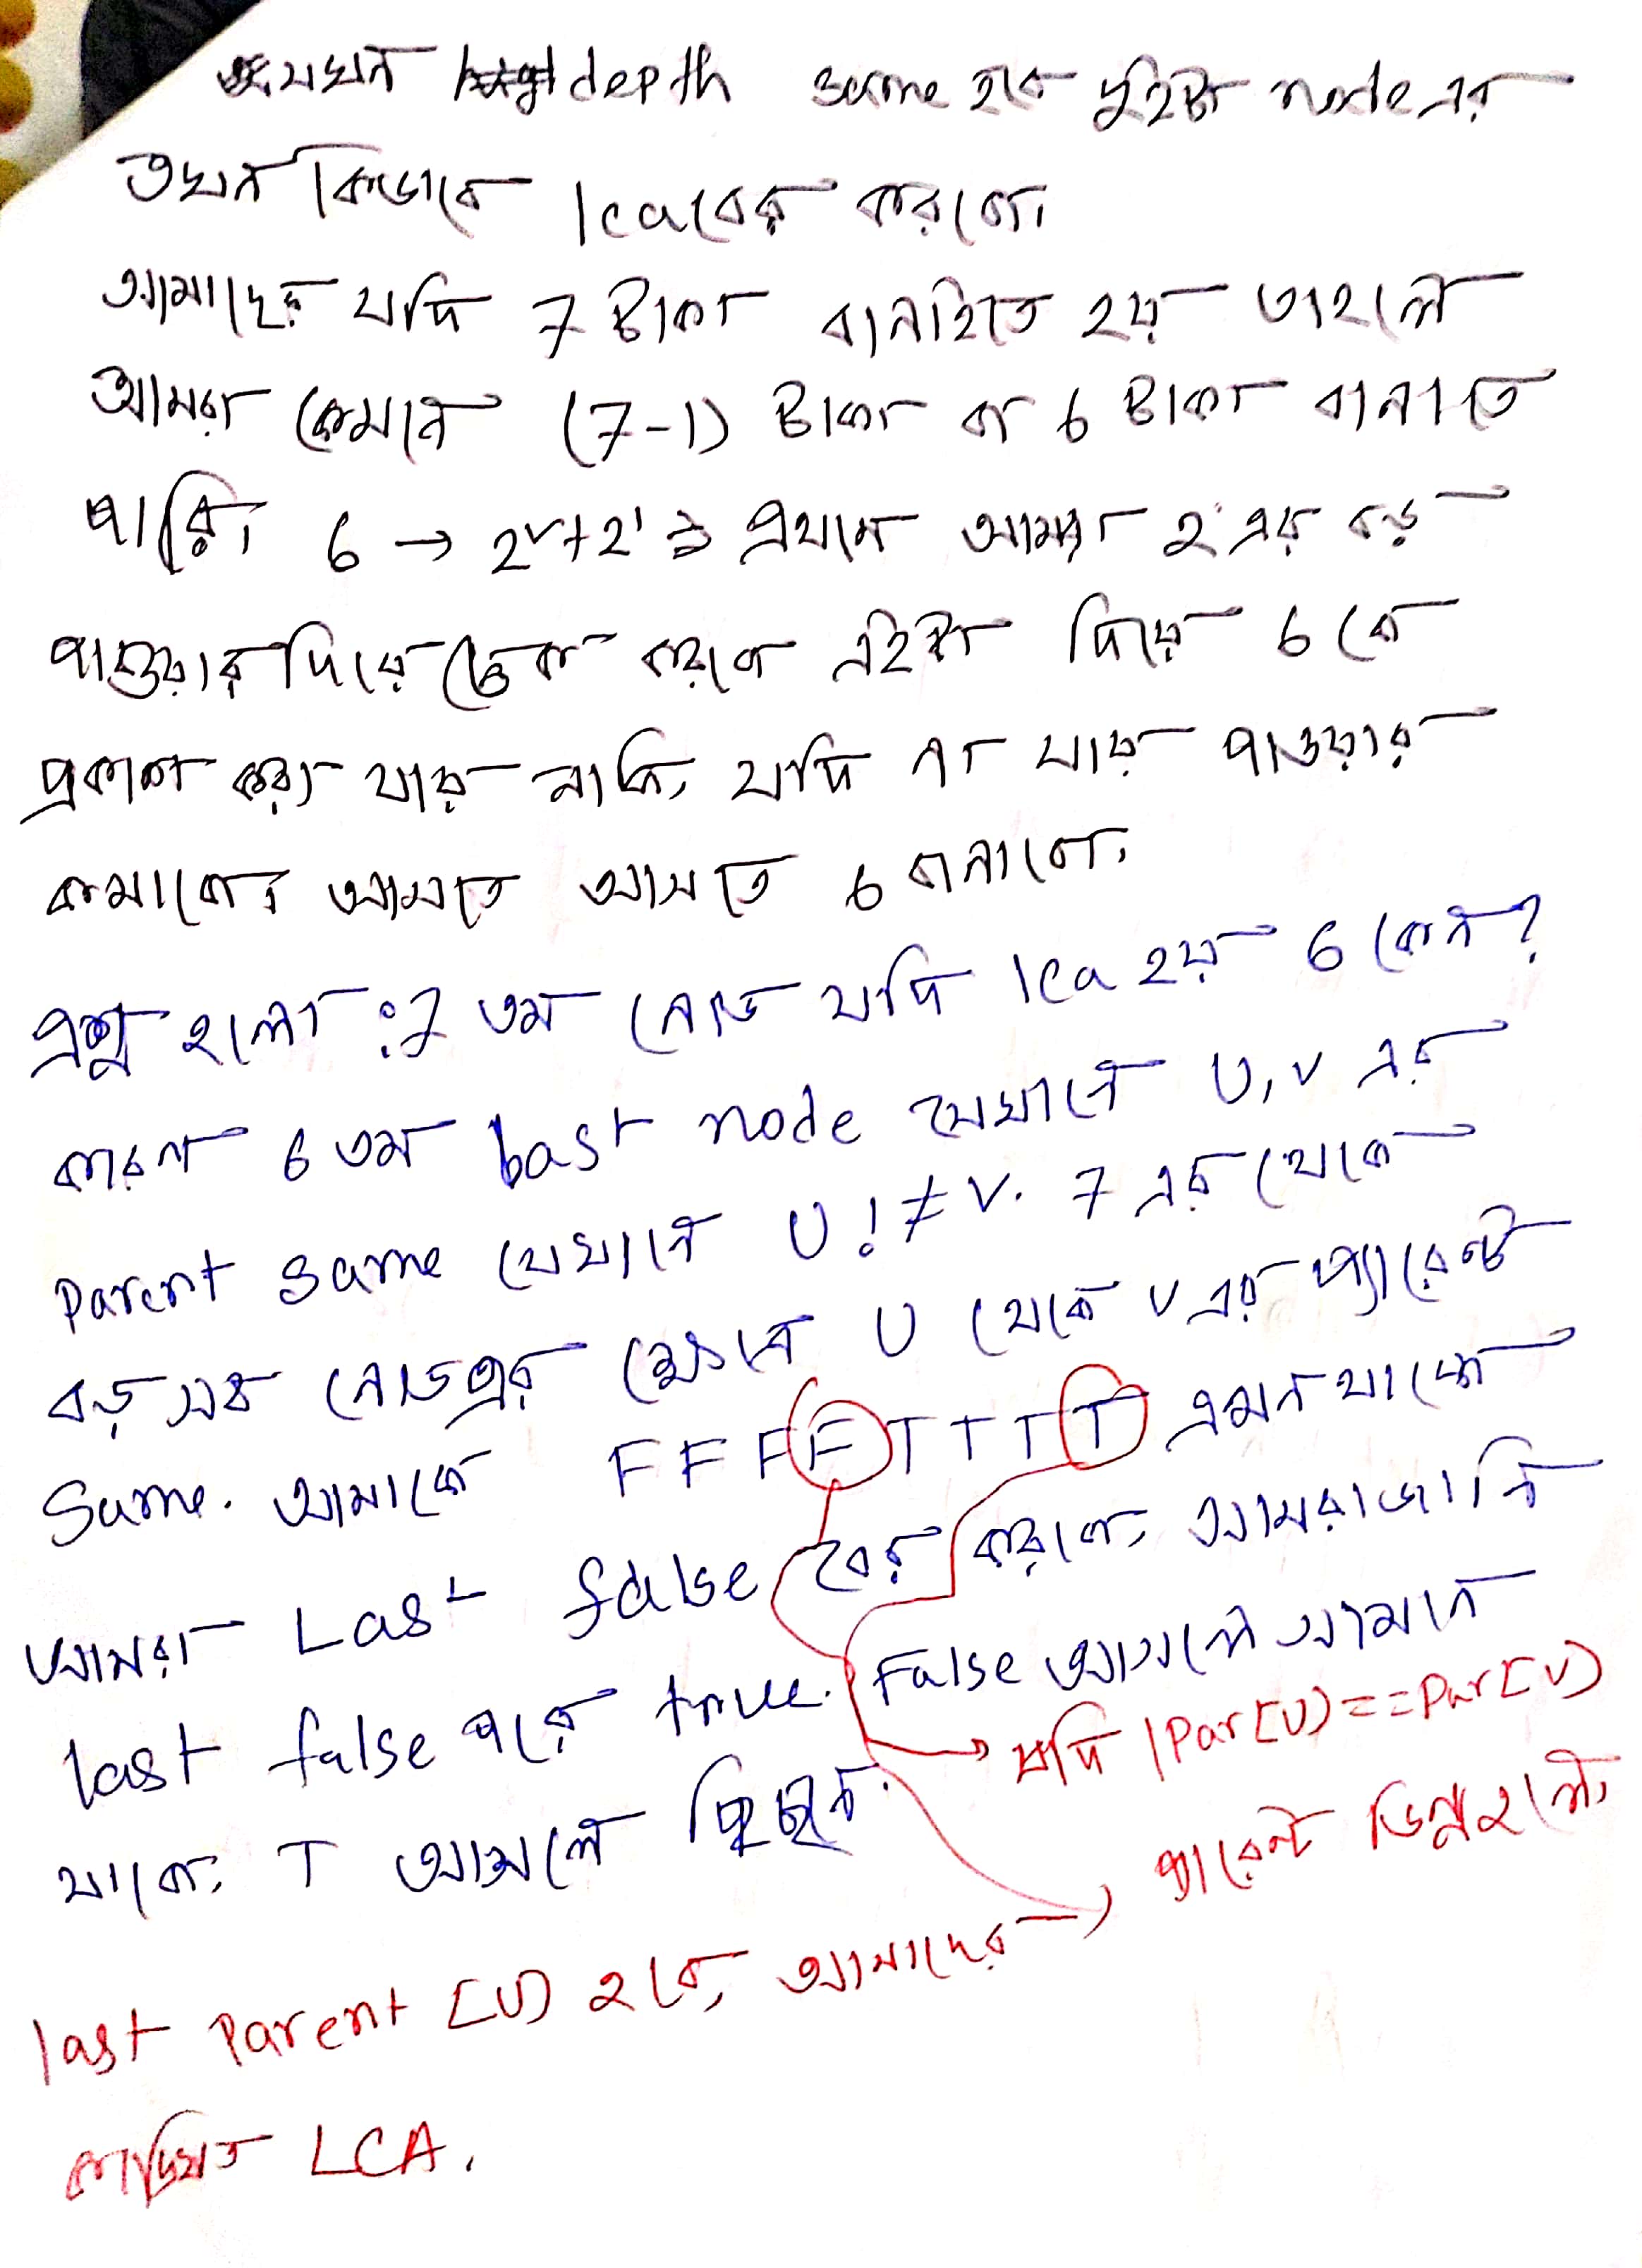 যখন depth same হবে দুইটা node এর
তখন কিভাবে lca বের করবো।
আমাদের যদি 7 টাকা বানাইতে হয় তাহলে
আমরা কেমনে (7-1) টাকা বা 6 টাকা বানাতে
পারি। 6 → 2² + 2¹ ⇒ প্রথমে আমরা 2 এর বড়
পাওয়ার দিয়ে চেক করবো এইটা দিয়ে 6 কে
প্রকাশ করা যায় নাকি, যদি না যায় পাওয়ার
কমাবো। আসতে আসতে 6 বানাবো।
প্রশ্ন হলো : 7 তম নোড যদি lca হয় 6 কেন?
কারণ 6 তম last node যেখানে U, V এর
Parent same যেখানে U != V. 7 এর থেকে
বড় সব নোড এর ক্ষেত্রে U থেকে V এর প্যারেন্ট
Same. আমাকে F F F F T T T T এমন থাকে
আমরা Last false বের করবো, আমরা জানি
last false পরে true. False আসলে সামনে
যাবো, T আসলে পিছনে.
যদি Par[U] == Par[V]
প্যারেন্ট ভিন্ন হলে,
last Parent [U] হবে, আমাদের
কাঙ্খিত LCA.